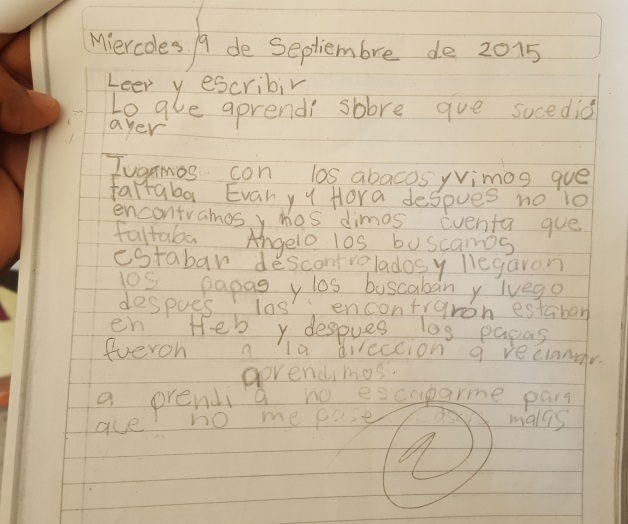 Miercoles 9 de Septiembre de 2015
Leer y escribir
Lo que aprendi sobre que sucedió
ayer
Jugamos con los abacos y vimos que
faltaba Evan y 1 Hora despues no lo
encontramos y nos dimos cuenta que
faltaba Angelo los buscamos
estaban descontrolados y llegaron
los papas y los buscaban y luego
despues los encontraron estaban
en Heb y despues los papas
fueron a la dirección a reclamar.
aprendimos.
aprendi a no escaparme para
que no me pase malas